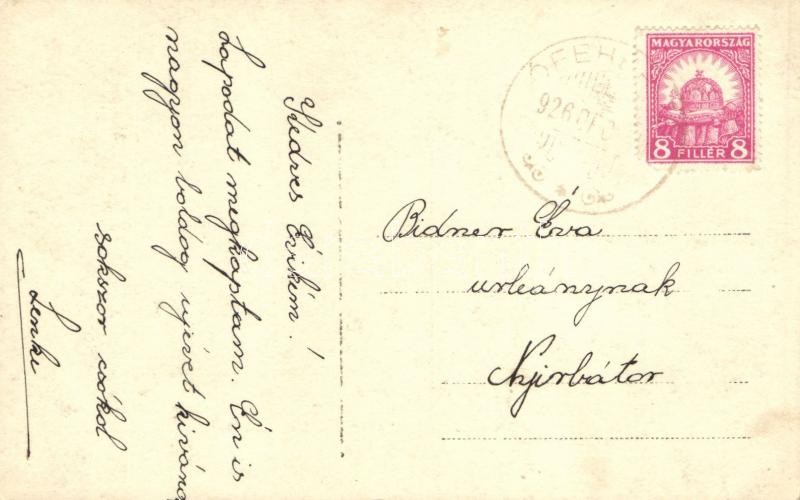 Kedves Évikém!
Lapodat megkaptam. Én is
nagyon boldog ujévet kiván
sokszor csókol
Lenke
MAGYARORSZÁG
8 FILLÉR 8
926 DEC
Bidner Éva
urleánynak
Nyirbátor